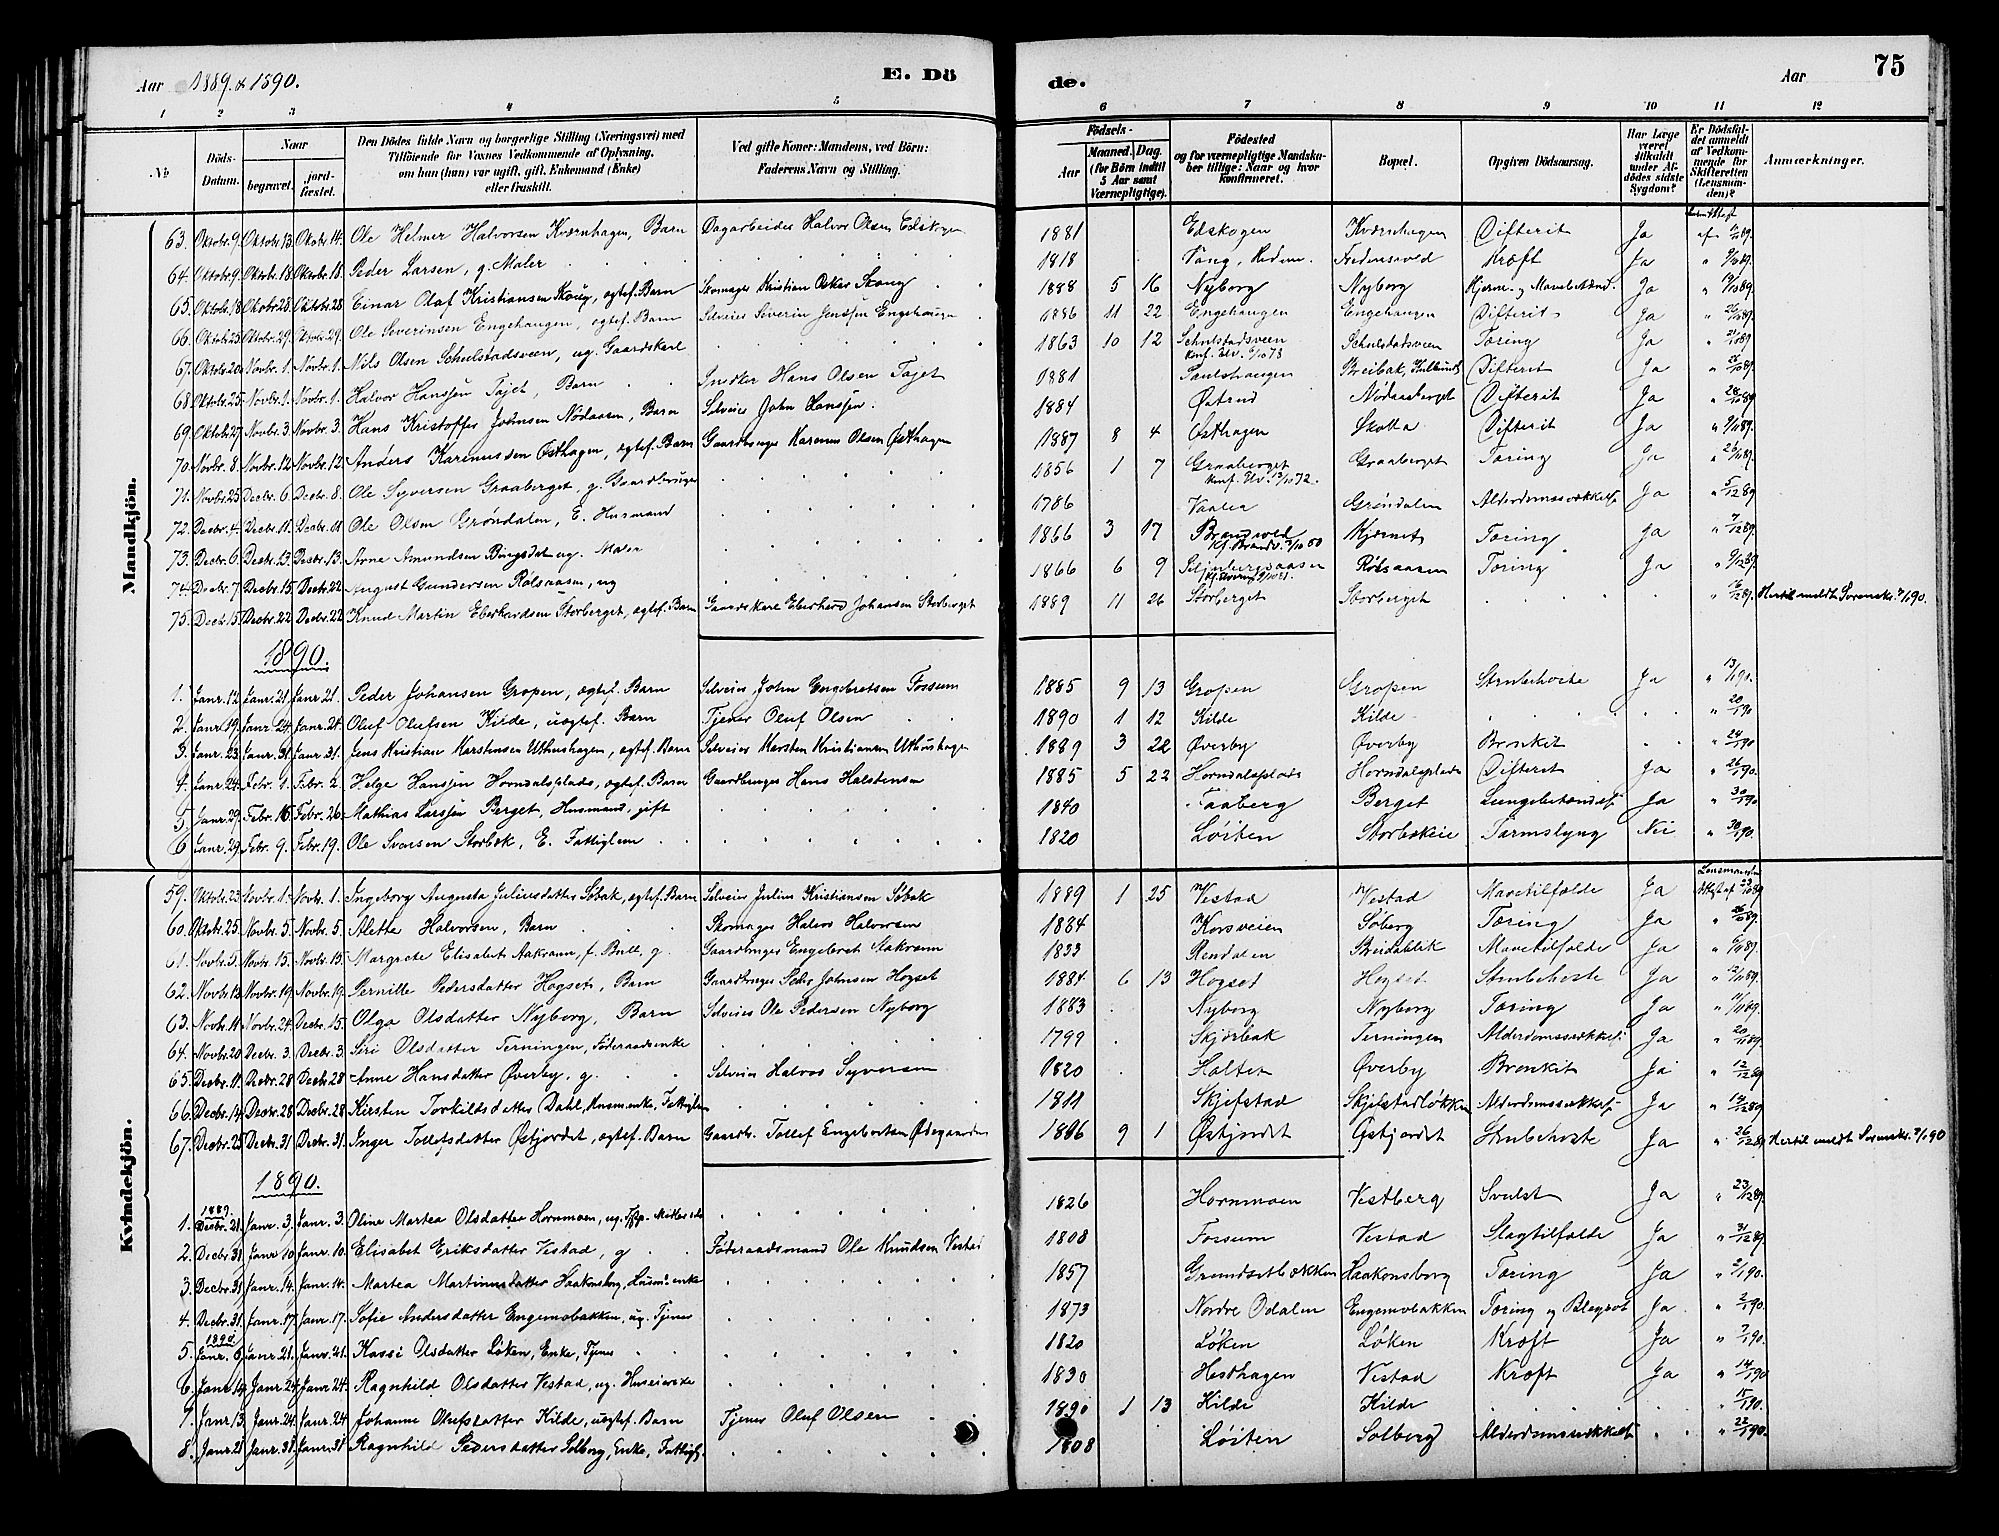 Aar 1889 & 1890. E. Dö de. Aar 75
1 2 3 4 5 6 7 8 9 10 11 12
No Döds-Datum. Naar begravet. jord-fæstet. Den Dödes fulde Navn og borgerlige Stilling (Næringsvei) med Tilföiende for Voxnes Vedkommende af Oplysning, om han (hun) var ugift, gift, Enkemand (Enke) eller fraskilt. Ved gifte Koner: Mandens, ved Börn: Faderens Navn og Stilling. Födsels- Aar Maaned. Dag. (for Börn indtil 5 Aar samt Værnepligtige). Födested og for værnepligtige Mandskaber tillige: Naar og hvor konfirmeret. Bopæl. Opgiven Dödsaarsag. Har Læge været tilkaldt under Afdödes sidste Sygdom? Er Dödsfaldet anmeldt af Vedkommende for Skifteretten (Lensmanden)? Anmærkninger.
Mandkjön.
63. Oktobr. 9. Oktobr. 13. Oktobr. 14. Ole Helmer Halvorsen Kværnhagen, Barn Dagarbeider Halvor Olsen Edskogen 1881 Edskogen Kværnhagen Difterit Ja
64. Oktobr. 9. Oktobr. 18. Oktobr. 18. Peder Larsen, g. Maler 1818 Vang, Hedem. Fredensvold Kræft Ja
65. Oktobr. 18. Oktobr. 28. Oktobr. 28 Einar Olaf Kristiansen Skoug, ogtef. Barn Skomager Kristian Oskar Skoug 1888 5 16 Nyborg Nyborg Ja
66. Oktobr. 25. Oktobr. 29. Oktobr. 29. Ole Severinsen Engehaugen, ogtef. Barn Selveier Severin Jenssen Engehaugen 1886 11 22 Engehaugen Engehaugen Difterit Ja
67. Oktobr. 20. Novbr. 1. Novbr. 1. Nils Olsen Schulstadsveen, ug. Gaardskarl 1863 10 12 Schulstadsveen Schulstadsveen Tæring Ja
68. Oktobr. 25. Novbr. 1. Novbr. 1 Halvor Hanssen Tajet, Barn Snedker Hans Olsen Tajet 1881 Difterit Ja
69. Oktobr. 27. Novbr. 3. Novbr. 3. Hans Kristoffer Johnsen Nødaasen, Barn Selveier John Hanssen. 1884 Østrud Nødaasberget Difterit Ja
70. Novbr. 8. Novbr. 12 Novbr. 12 Anders Karenussen Østhagen, ogtef. Barn Gaardbruger Karenus Olsen Østhagen 1887 8 4 Østhagen Skotta Difterit Ja
71. Novbr. 25 Decbr. 6 Decbr. 8. Ole Syversen Graaberget, g. Gaardbruger 1856 1 7 Graaberget Graaberget Tæring Ja
72. Decbr. 4. Decbr. 11. Decbr. 11 Ole Olsen Grøndalen, E. Husmand 1786 Vaaler Grøndalen Alderdomssvækkelse Ja
73. Decbr. 6. Decbr. 13. Decbr. 13. Arne Amundsen ug. Maler 1866 3 17 Brandvold Kjernet Tæring Ja
74. Decbr. 7 Decbr. 15 Decbr. 22 August Gundersen Rølsaasen, ug 1866 6 9 Rølsaasen Tæring Ja
75. Decbr. 15 Decbr. 22 Decbr. 22 Knud Martin Eberhardsen Storberget, ogtef. Barn Gaardskarl Eberhard Johansen Storberget 1889 11 26 Storberget Storberget Hertil meldt Sorenskr. 3/1 90.
1890.
1. Janr. 12 Janr. 21 Janr. 21. Peder Johansen Gropen, ogtef. Barn Selveier John Engebretsen Fossum 1885 9 13 Gropen Gropen Strubehoste Ja 13/1 90.
2. Janr. 19. Janr. 24 Janr. 24. Oluf Olufsen Kilde, uogtef. Barn Tjener Oluf Olsen 1890 1 12 Kilde Kilde 20/1 90
3. Janr. 23 Janr. 31 Janr. 31. Jens Kristian Karstensen Uthushagen, ogtef. Barn Selveier Karsten Kristiansen Uthushagen 1889 3 22 Øverby Øverby Bronkit 24/1 90
4. Janr. 24. Febr. 1. Febr. 2. Helge Hanssen Horndalsplads, ogtef. Barn Gaardbruger Hans Halstensen 1885 5 22 Horndalsplads Horndalsplads Difterit Ja 26/1 90.
5. Janr. 29. Febr. 16. Febr. 26. Mathias Larssen Berget, Husmand, gift 1840 Faaberg Berget Lungebetændelse Ja 30/1 90
6 Janr. 29 Febr. 9. Febr. 19. Ole Svensen Storbæk, E. Fattiglem 1820 Løiten Storbækeie Tarmslyng Nei 30/1 90.
Kvindekjön.
59. Oktobr. 23. Novbr. 1. Novbr. 1 Ingeborg Augusta Juliusdatter Søbak, ogtef. Barn Selveier Julius Kristiansen Søbak 1889 1 25 Vestad Vestad Mavetilfælde Ja
60. Oktbr. 25. Novbr. 5 Novbr. 5 Aletta Halvorsen, Barn Skomager Halvor Halvorsen 1884 Korsveien Søberg Tæring Ja
61. Novbr. 5. Novbr. 15. Novbr. 15. Margrete Elisabet Aakrann, f. Bull, g. Gaardbruger Engebret Aakrann 1833 Rendalen Breidablik Mavetilfælde Ja
62. Novbr. 12 Novbr. 19 Novbr. 19. Pernille Pedersdatter Hogset, Barn Gaardbruger Peder Johnsen Hogset 1884 6 13 Hogset Hogset Strubehoste Ja
63. Novbr. 11. Novbr. 24. Decbr. 15. Olga Olsdatter Nyborg, Barn Selveier Ole Pedersen Nyborg 1883 Nyborg Nyborg Tæring Ja
64. Novbr. 20 Decbr. 3. Decbr. 3 Siri Olsdatter Terningen, Føderaadsenke 1799 Skjærbæk Terningen Alderdomssvækkelse Ja
65. Decbr. 11. Decbr. 28 Decbr. 28 Anne Hansdatter Øverby, g. Selveier Halvor Syversen 1820 Holtet Øverby Bronkit Ja 12/12 89
66. Decbr. 14 Decbr. 28 Decbr. 28 Kirsten Torkildsdatter Dahl, Husm.enke, Fattiglem 1811 Skjefstad Skjefstadløkken Alderdomssvækkelse Ja 14/12 89
67. Decbr. 25 Decbr. 31 Decbr. 31. Inger Tollefsdatter Østjordet, ogtef. Barn Gaardbr. Tollef Engebretsen Ødegaarden 1886 9 1 Østjordet Østjordet Strubehoste Ja 26/12 89 Hertil meldt Sorenskr. 3/1 90
1890.
1889.
1. Decbr. 21. Janr. 3. Janr. 3. Oline Martea Olsdatter Hornmoen, ug. 1826 Hornmoen Vestberg Svulst Ja 23/12 89.
2. Decbr. 31. Janr. 10 Janr. 10. Elisabet Eriksdatter Vestad, g Føderaadsmand Ole Knudsen Vestad 1808 Fossum Vestad Slagtilfælde Ja 31/12 89
3. Decbr. 31 Janr. 14. Janr. 14. Martea Martinusdatter Haakonsborg, Husm. enke 1857 Grundsetbækken Haakonsborg Tæring Ja 2/1 90.
4. Decbr. 31. Janr. 17. Janr. 17. Sofie Andersdatter Engemobakken, ug. Tjener 1873 Nordre Odalen Engemobakken Tæring og Blegsot Ja. 2/1 90.
1890.
5. Janr. 6 Janr. 21. Janr. 21. Kassi Olsdatter Løken, Enke, Tjener 1820 Løken Løken Kræft Ja 7/1 90.
6 Janr. 14. Janr. 24 Janr. 24. Ragnhild Olsdatter Vestad, ug. Huseierske 1830 Hesthagen Vestad Kræft Ja 14/1 90
7. Janr. 13. Janr. 24. Janr. 24 Johanne Olufsdatter Kilde, uogtef. Barn Tjener Oluf Olsen 1890 1 13 Kilde Kilde 15/1 90.
8. Janr. 21 Janr. 31 Janr. 31 Ragnhild Pedersdatter Solberg, Enke, Fattigl. 1808 Løiten Solberg Alderdomssvækkelse 22/1 90.